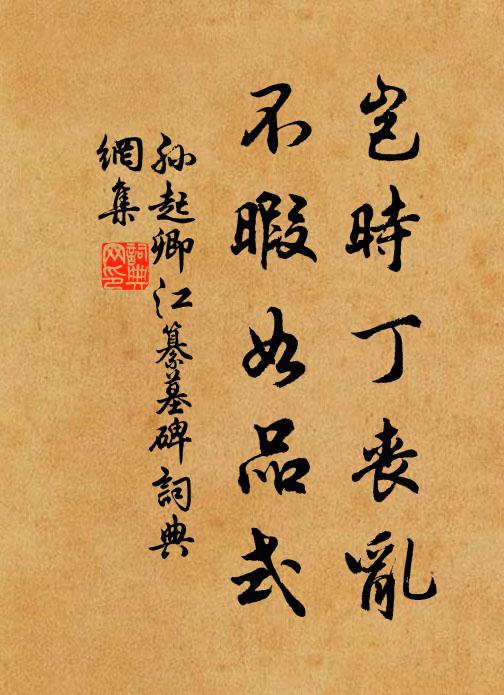 岂時丁丧亂
不暇如品式
孙起卿江纂墓碑詞典
網集
詞典
网印